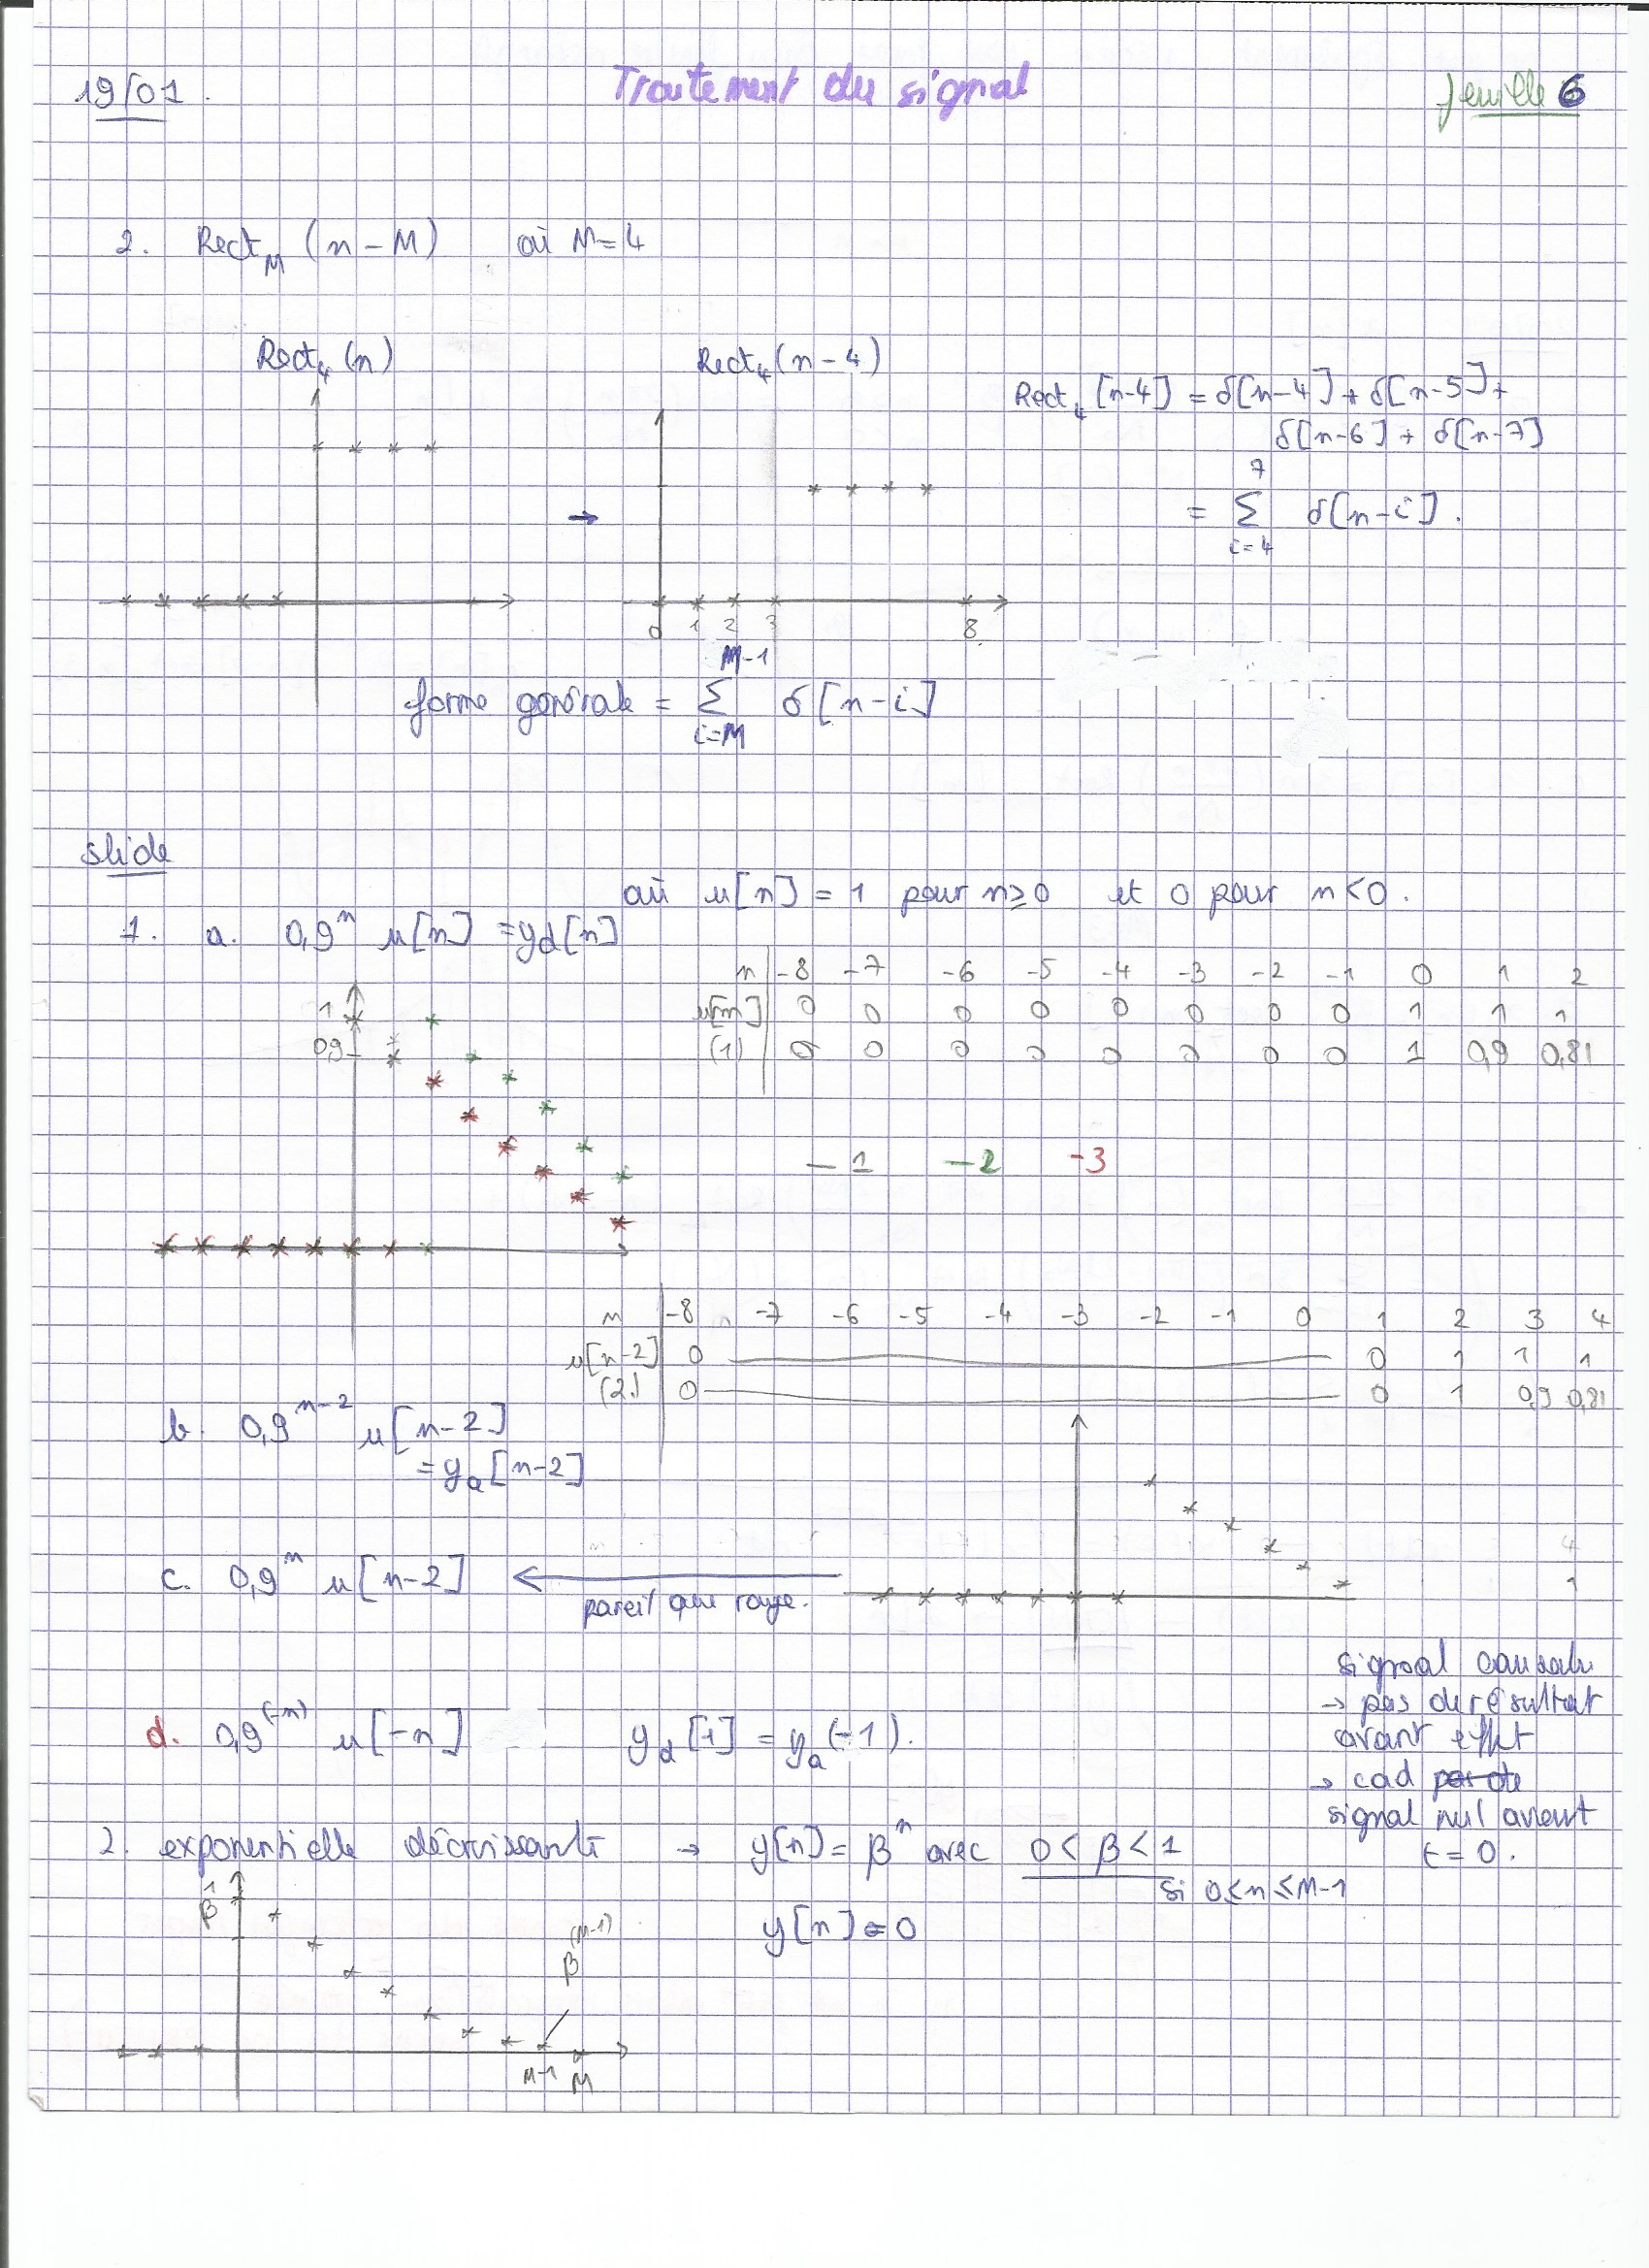 19/01.
Traitement du signal
feuille 6
2. Rect_M (n-M) où M=4
Rect_4 (n)
Rect_4 (n-4)
Rect_4 [n-4] = δ[n-4] + δ[n-5] +
δ[n-6] + δ[n-7]
7
= Σ δ[n-i].
i=4
0 1 2 3 8
M-1
forme générale = Σ δ[n-i]
i=M
slide
où u[n] = 1 pour n≥0 et 0 pour n<0.
1. a. 0,9^n u[n] = yd[n]
n -8 -7 -6 -5 -4 -3 -2 -1 0 1 2
u[n] 0 0 0 0 0 0 0 0 1 1 1
(1) 0 0 0 0 0 0 0 0 1 0,9 0,81
1
0,9
—1 —2 -3
n -8 -7 -6 -5 -4 -3 -2 -1 0 1 2 3 4
u[n-2] 0 0 1 1 1
(2.) 0 0 1 0,9 0,81
b. 0,9^{n-2} u[n-2]
= y_a[n-2]
c. 0,9^n u[n-2]
pareil que rouge.
4
1
signal causale
→ pas de résultat
avant effet
→ cad pas de
signal nul avant
t=0.
d. 0,9^{(-n)} u[-n] y_d [1] = y_a (-1).
2. exponentielle décroissante → y[n] = β^n avec 0 < β < 1
si 0≤n≤M-1
y[n] = 0
1
β
β^{(M-1)}
M-1 M